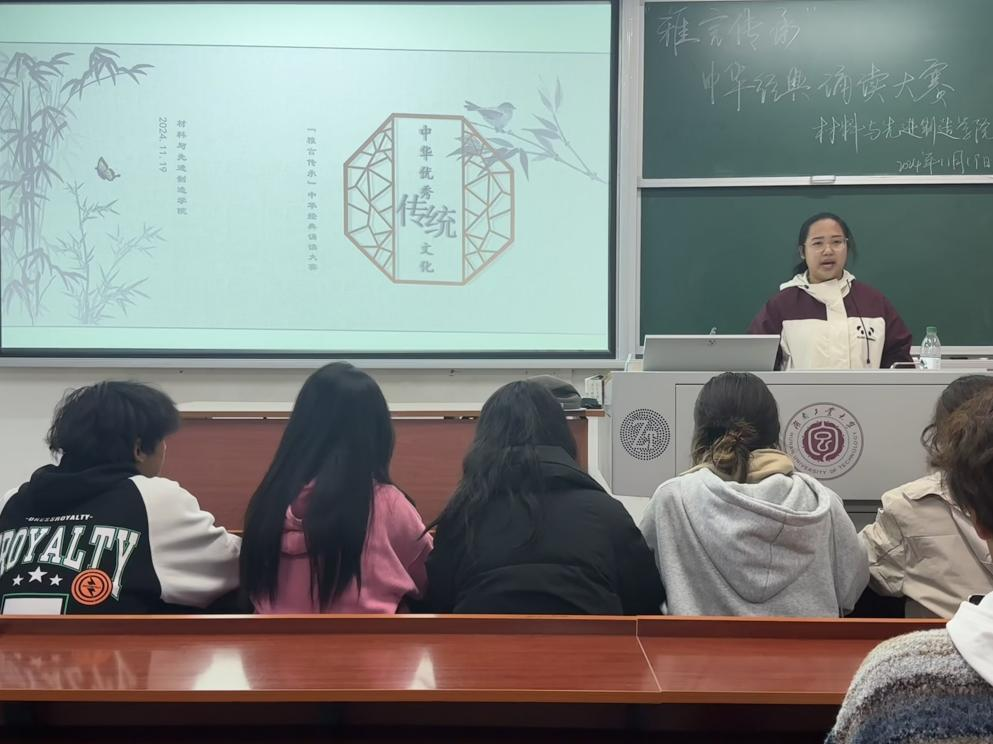 材料与先进制造学院
2024.11.19
「雅言传承」中华经典诵读大赛
中华优秀
传统
文化
"雅言传承"
中华经典诵读大赛
材料与先进制造学院
2024年11月19日
湖南工业大学
HUNAN UNIVERSITY OF TECHNOLOGY
ROYALTY